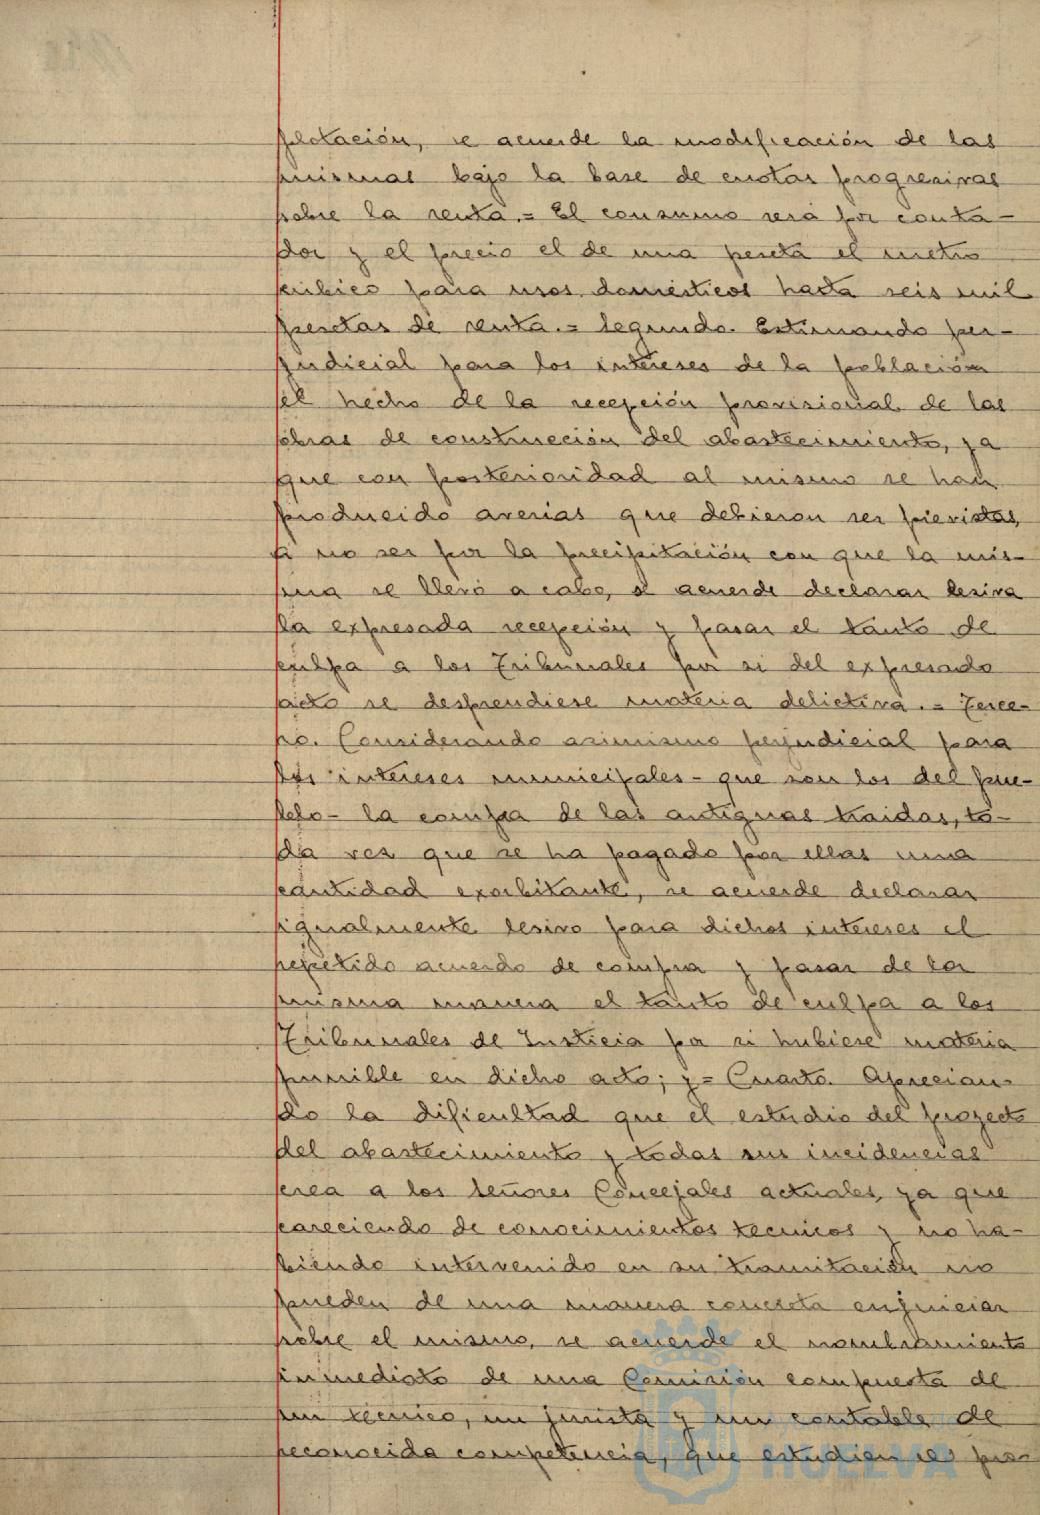 plotación, se acuerde la modificación de las
mismas bajo la base de cuotas progresivas
sobre la renta.= El consumo será por conta-
dor y el precio el de una peseta el metro
cúbico para usos domésticos hasta seis mil
pesetas de renta.= Segundo. Estimando per-
judicial para los intereses de la población
el hecho de la recepción provisional de las
obras de construcción del abastecimiento, ya
que con posterioridad al mismo se han
producido averías que debieron ser previstas,
a no ser por la precipitación con que la mis-
ma se llevó a cabo, se acuerde declarar lesiva
la expresada recepción y pasar el tanto de
culpa a los Tribunales por si del expresado
acto se desprendiese materia delictiva.= Terce-
ro. Considerando asimismo perjudicial para
los intereses municipales- que son los del pue-
blo- la compra de las antiguas traidas, to-
da vez que se ha pagado por ellas una
cantidad exorbitante, se acuerde declarar
igualmente lesivo para dichos intereses el
repetido acuerdo de compra y pasar de la
misma manera el tanto de culpa a los
Tribunales de Justicia por si hubiese materia
punible en dicho acto; y= Cuarto. Aprecian-
do la dificultad que el estudio del proyecto
del abastecimiento y todas sus incidencias
crea a los Señores Concejales actuales, ya que
careciendo de conocimientos tecnicos y no ha-
biendo intervenido en su tramitación no
pueden de una manera concreta enjuiciar
sobre el mismo, se acuerde el nombramiento
inmediato de una Comisión compuesta de
un técnico, un jurista y un contable de
reconocida competencia, que estudien el pro-
HUELVA